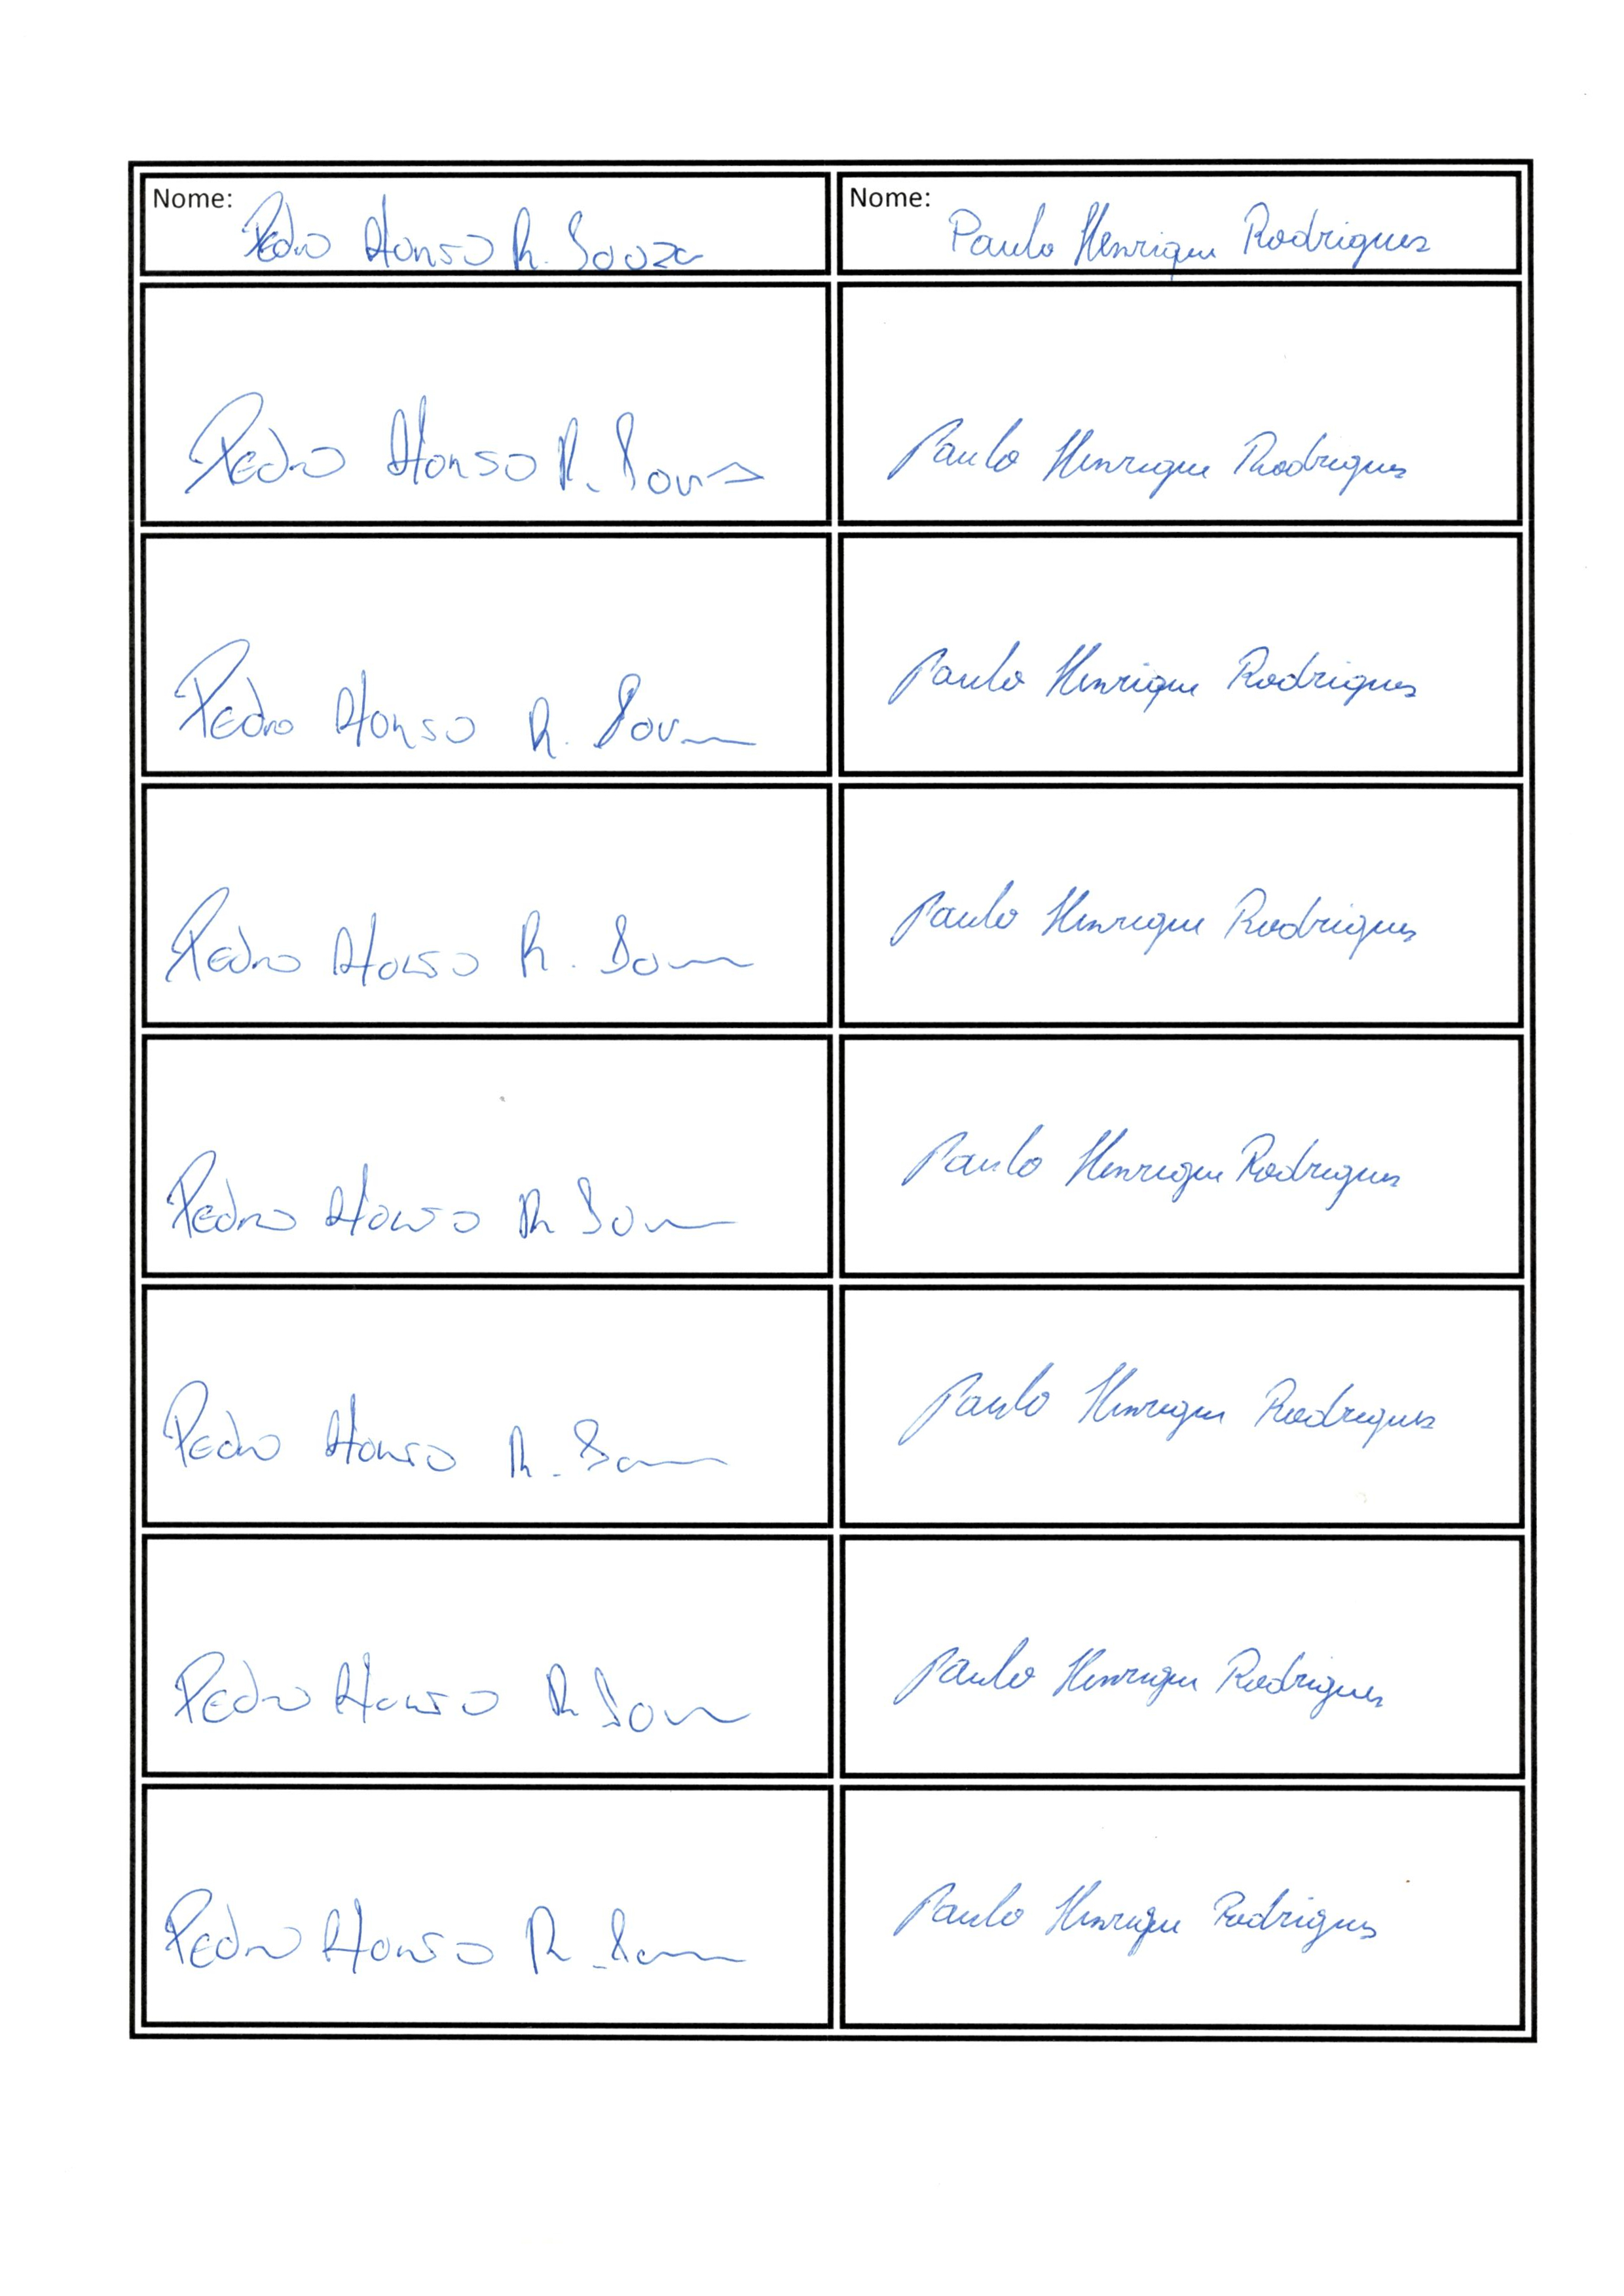 Nome: Pedro Afonso R. Souza
Nome: Paulo Henrique Rodrigues
Pedro Afonso R. Souza
Paulo Henrique Rodrigues
Pedro Afonso R. Sou
Paulo Henrique Rodrigues
Pedro Afonso R. Sou
Paulo Henrique Rodrigues
Pedro Afonso R Sou
Paulo Henrique Rodrigues
Pedro Afonso R. Sou
Paulo Henrique Rodrigues
Pedro Afonso R Sou
Paulo Henrique Rodrigues
Pedro Afonso R. Sou
Paulo Henrique Rodrigues